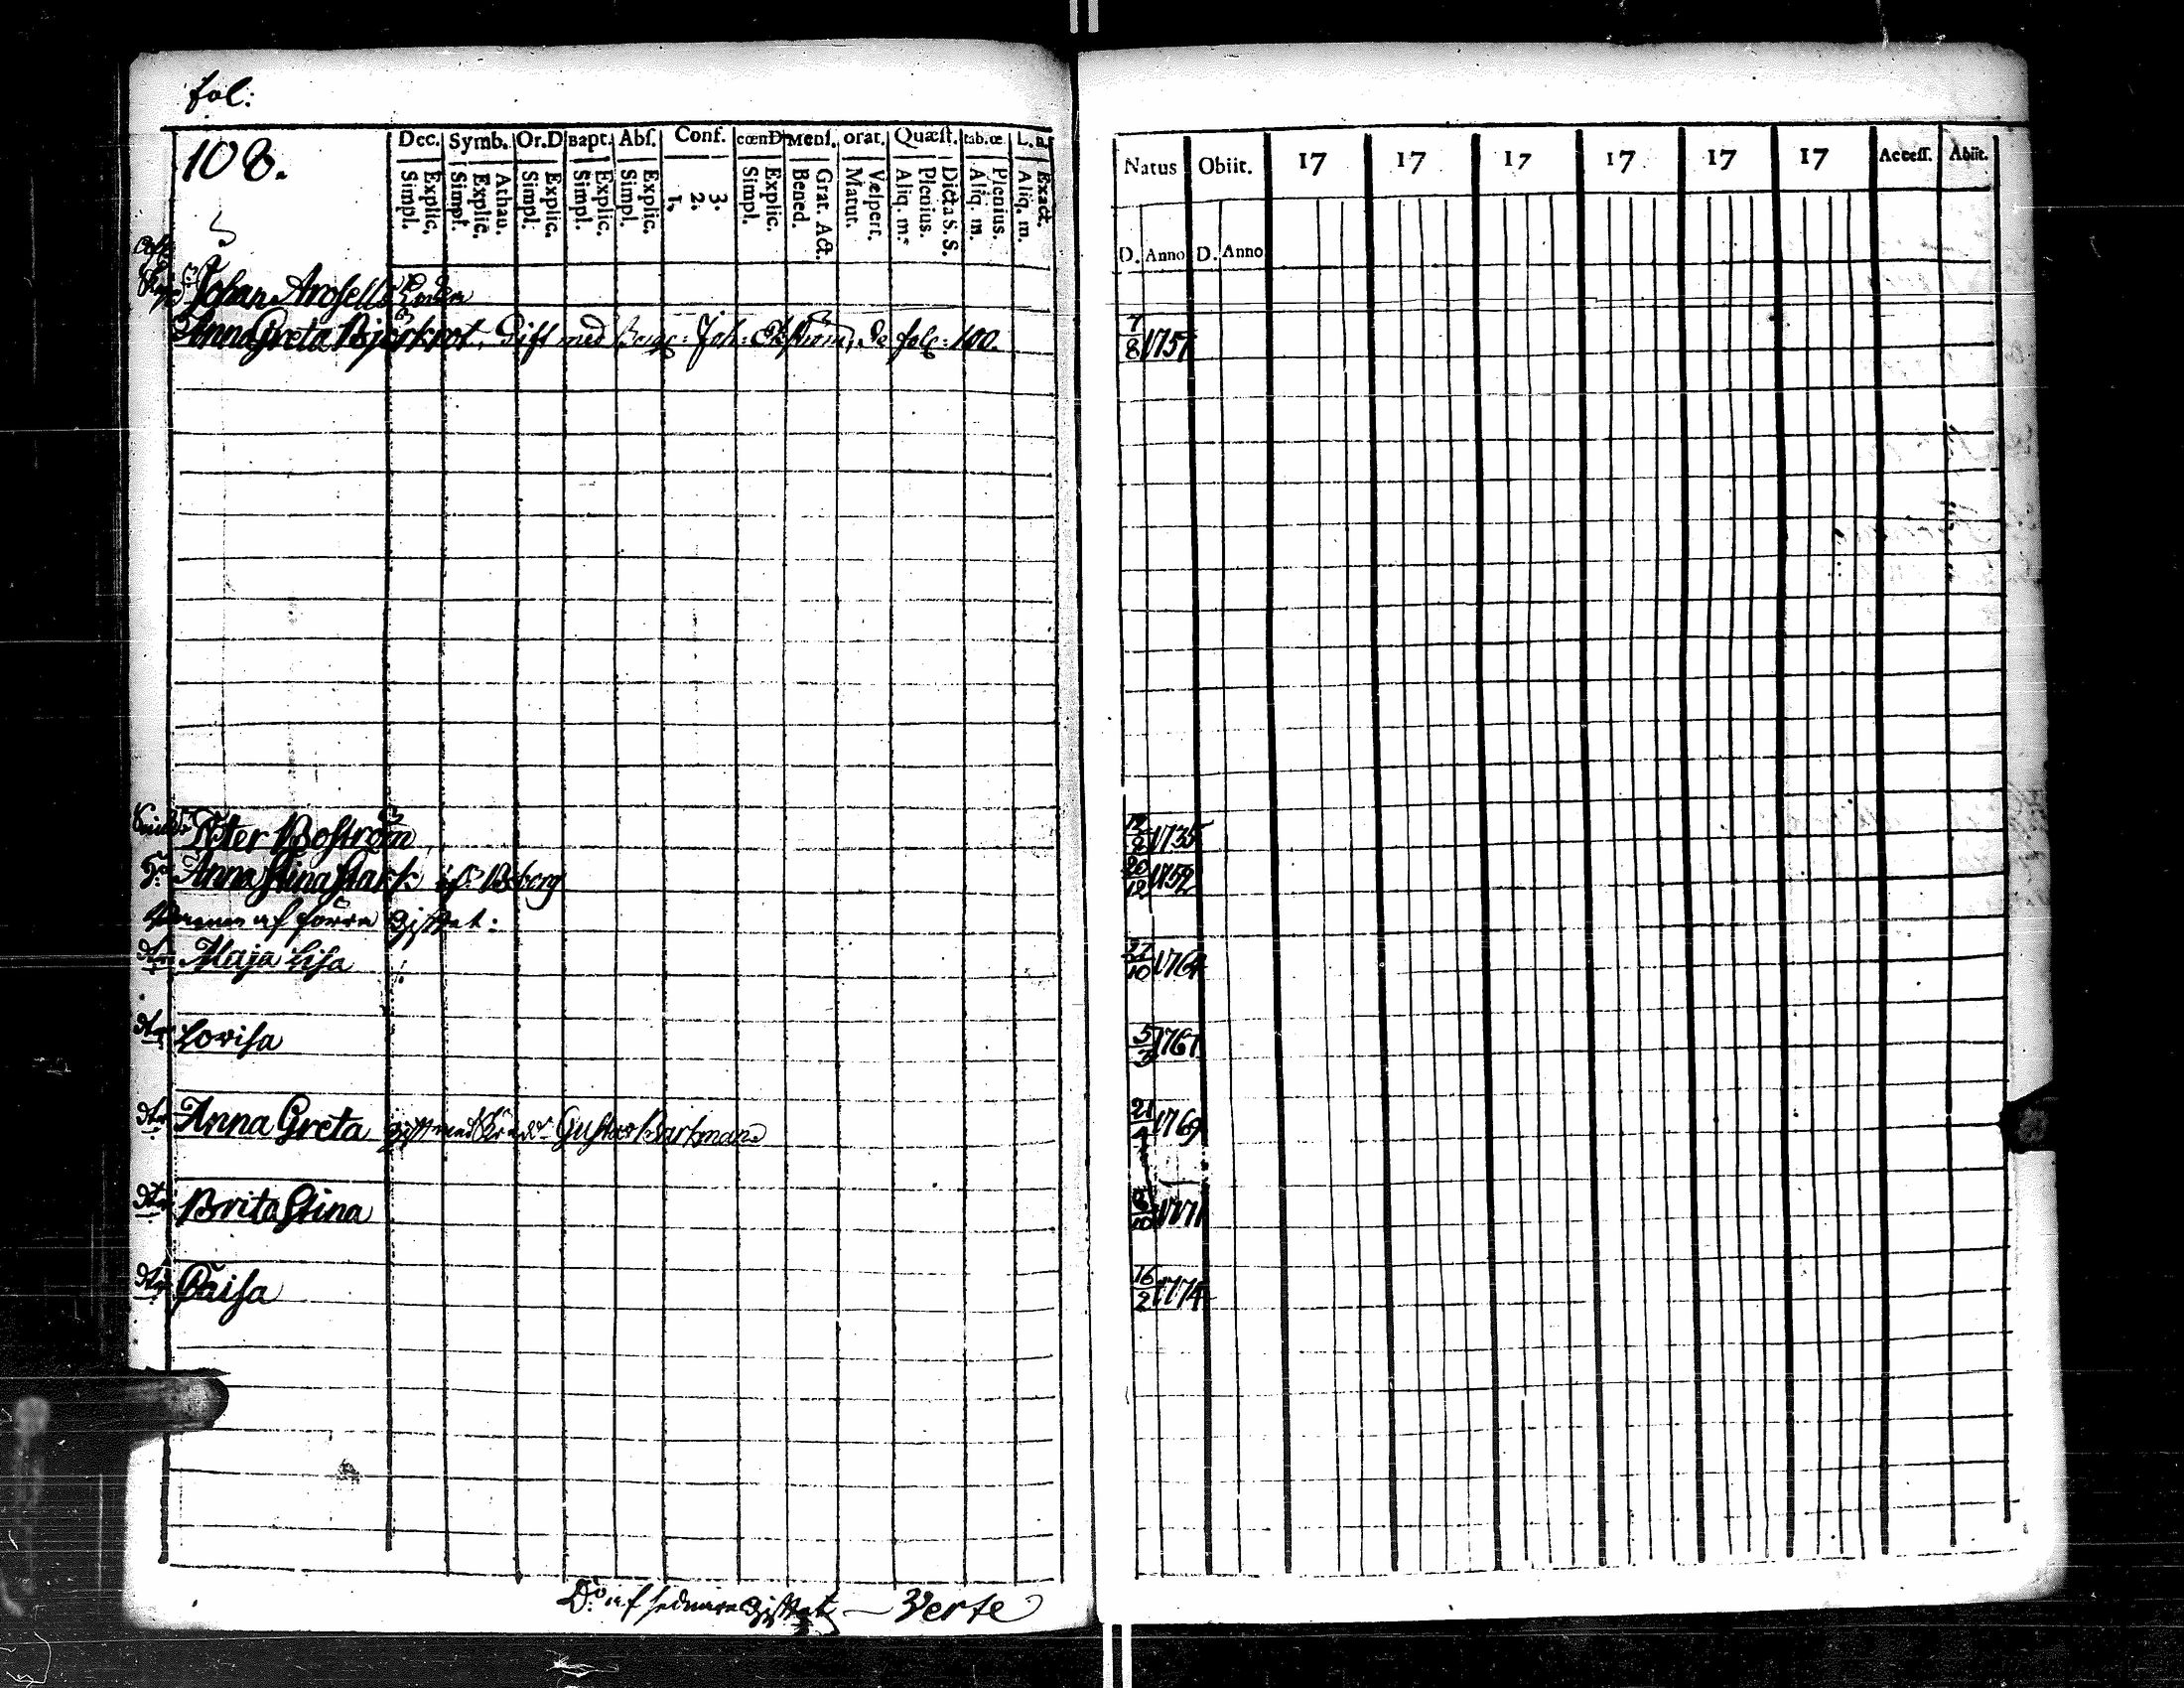 fol:
108.
Dec. Symb. Or.D Bapt. Abſ. Conf. cœnD Menſ. orat. Quæſt. tab.œ L. n.
Explic. Simpl. Athan. Explic. Simpl. Explic. Simpl. Explic. Simpl. Explic. Simpl. 3. 2. 1. Explic. Simpl. Grat. Act. Bened. Veſpert. Matut. Dicta S. S. Plenius. Aliq. m. Plenius. Aliq. m. Exact. Aliq. m.
Johan Aroselli
Anna Greta Björkrot, Gift med Joh: Ekström, 100.
Peter Boström
Anna Stina Stark
af förra Giftet:
dtr Maja Lisa
dtr Lovisa
dtr Anna Greta gift med Gustav Barkman
dtr Brita Stina
dtr Caisa
Do af sednare Giftet — Verte
Natus Obiit. 17 17 17 17 17 17 Acceſſ. Abiit.
D. Anno D. Anno
7/8 1757
1735
20/12 1752
27/10 1764
5/3 1767
21/4 1769
8/10 1771
16/2 1774